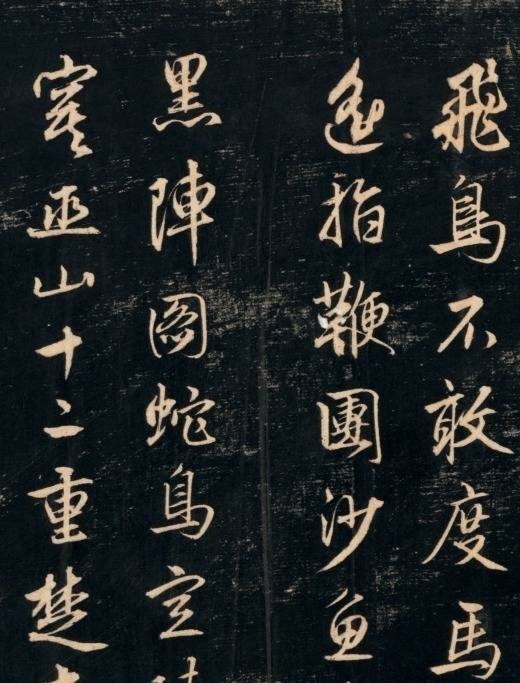 飛鳥不敢度馬
遙指鞭團沙魚
黑陣圖蛇鳥空
寒巫山十二重楚